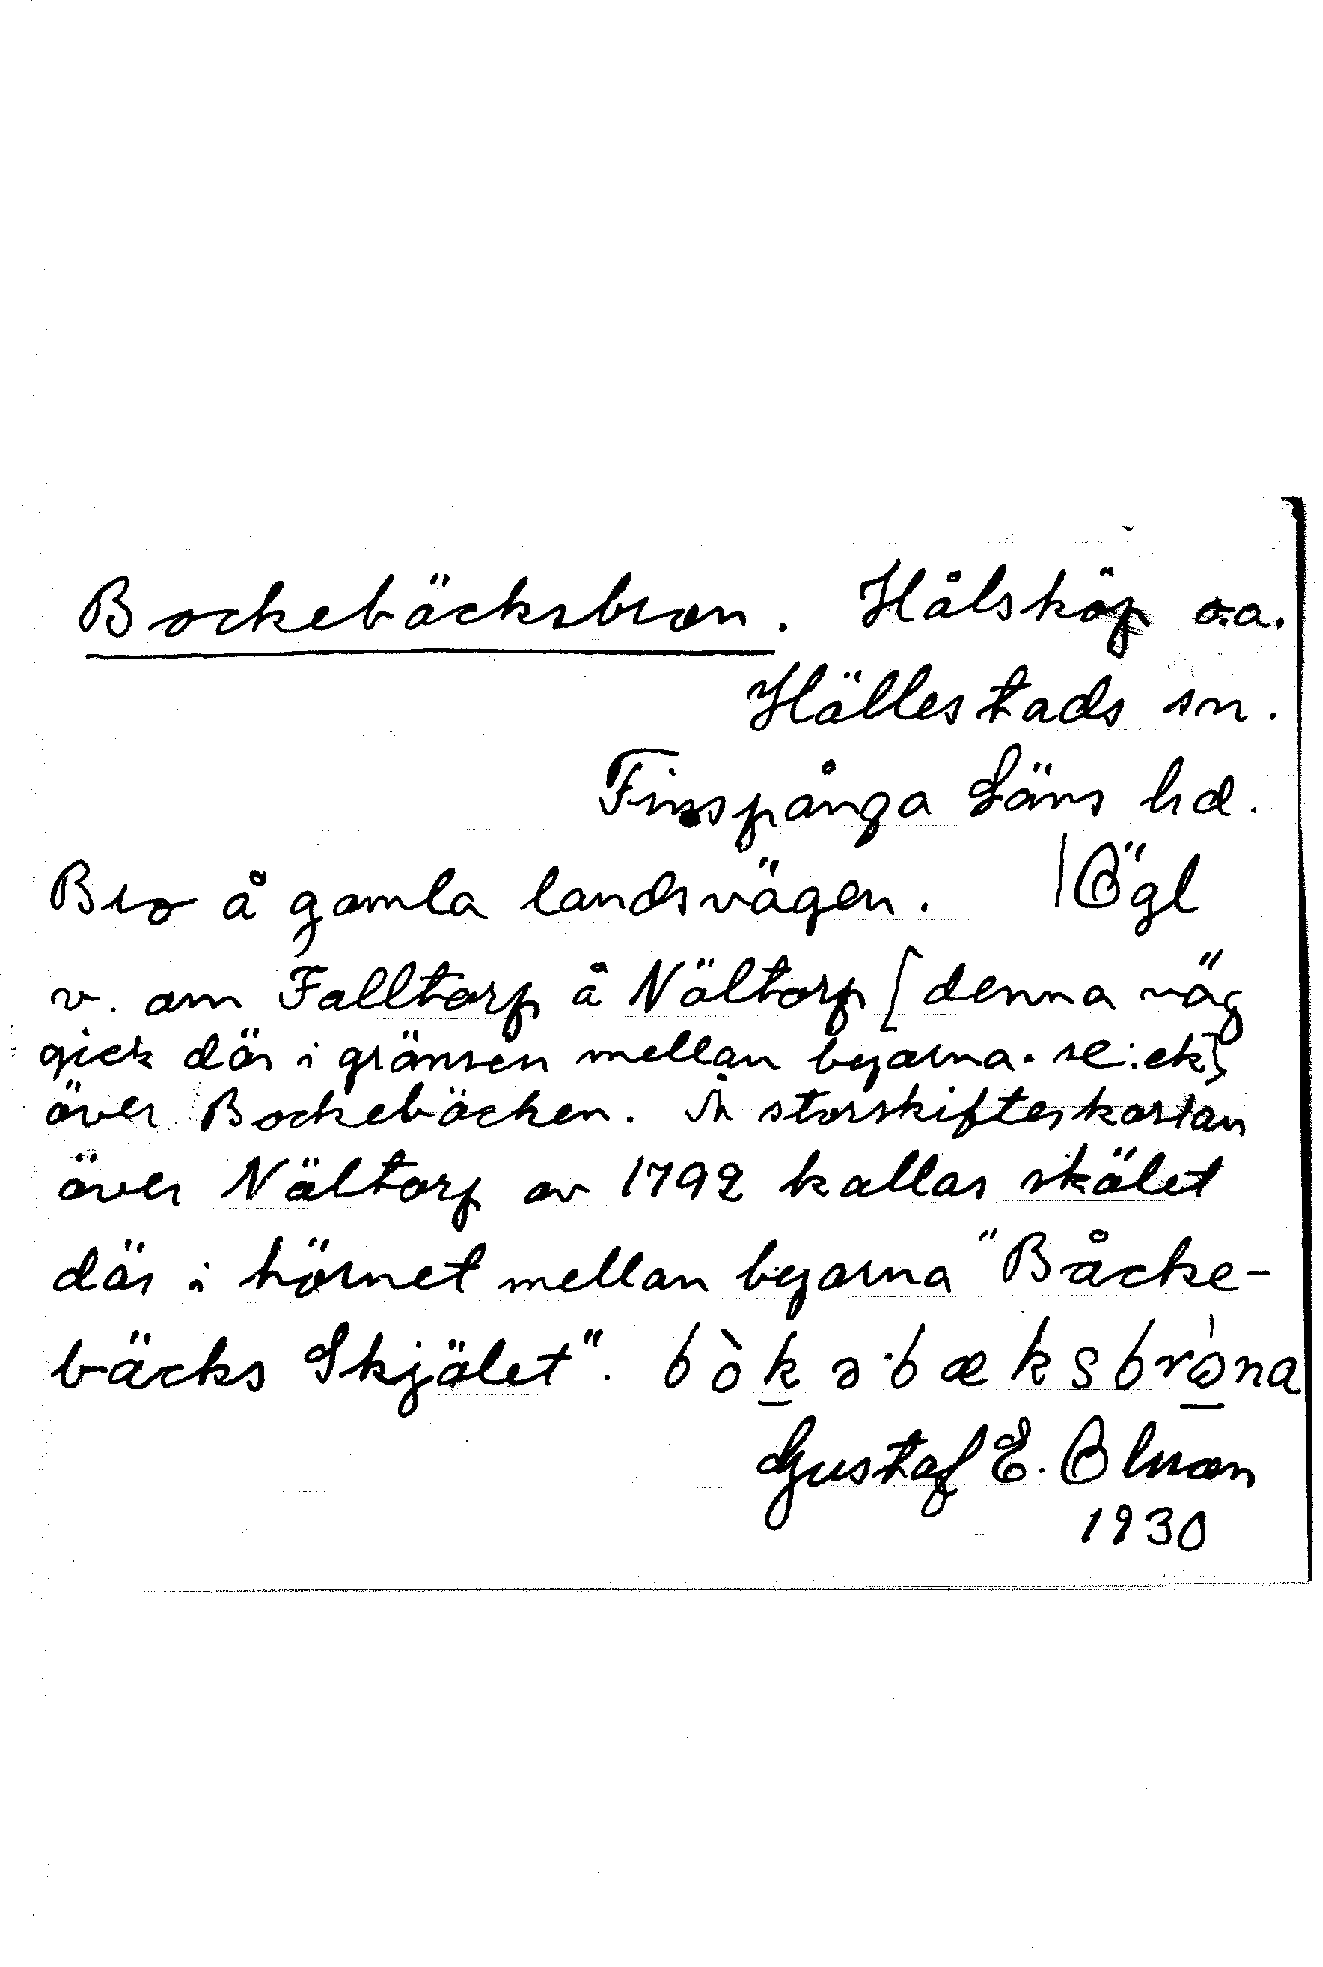 Bockebäcksbron. Hålsköp o.a.
Hällestads sn.
Finspånga Läns hd.
Bro å gamla landsvägen. /Ögl
v. om Falltorp å Nältorp [denna väg
gick där i gränsen mellan byarna. se: ek]
över Bockebäcken. Å storskifteskartan
över Nältorp av 1792 kallas skälet
där i hörnet mellan byarna "Båcke-
bäcks Skjälet".
Gustaf E.
1930